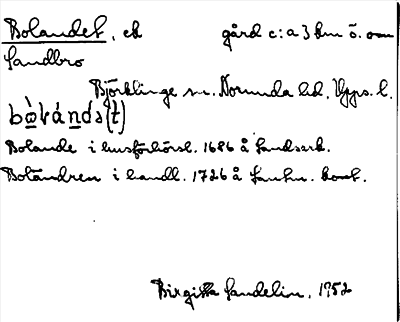 Bolandet, eb gård c:a 3 km ö. om
Sandbro
Björklinge sn. Norunda hd. Upps. l.
bòlánds(t)
Bolande i husförhörsl. 1686 å Landsark.
Boländren i handl. 1726 å Lantm. kont.
Birgitta Sandelin. 1952